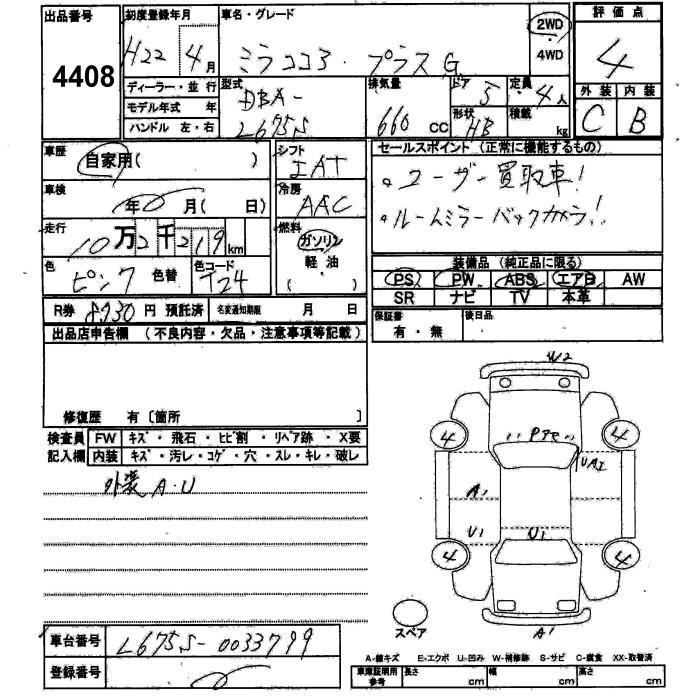 出品番号 4408
初度登録年月 H22 年 4月
車名・グレード ミラココア・プラスG
2WD
4WD
評価点 4
外装 C 内装 B
ディーラー・並行
モデル年式 年
ハンドル 左・右
型式 DBA-
L675S
排気量 660 cc
ドア 5
形状 HB
定員 4人
積載 kg
車歴 自家用( )
車検 年 月( 日)
走行 10万2千219km
色 ピンク 色替
色コード T24
シフト IAT
冷房 AAC
燃料 ガソリン
軽油
( )
セールスポイント (正常に機能するもの)
。ユーザー買取車!
・ルームミラーバックカメラ!!
装備品 (純正品に限る)
PS PW ABS エアB AW
SR ナビ TV 本革
保証書 有・無
後日品
R券 8930円 預託済 名変通知期限 月 日
出品店申告欄 (不良内容・欠品・注意事項等記載)
修復歴 有〔箇所 〕
検査員 FW キズ・飛石・ヒビ割・リペア跡・X要
記入欄 内装 キズ・汚レ・コゲ・穴・スレ・キレ・破レ
外装 A・U
W2
4 4
A1
U1 U1
4 4
A1
スペア
車台番号 L675S-0033799
登録番号
A-線キズ E-エクボ U-凹み W-補修跡 S-サビ C-腐食 XX-取替済
車庫証明用参考 長さ cm 幅 cm 高さ cm